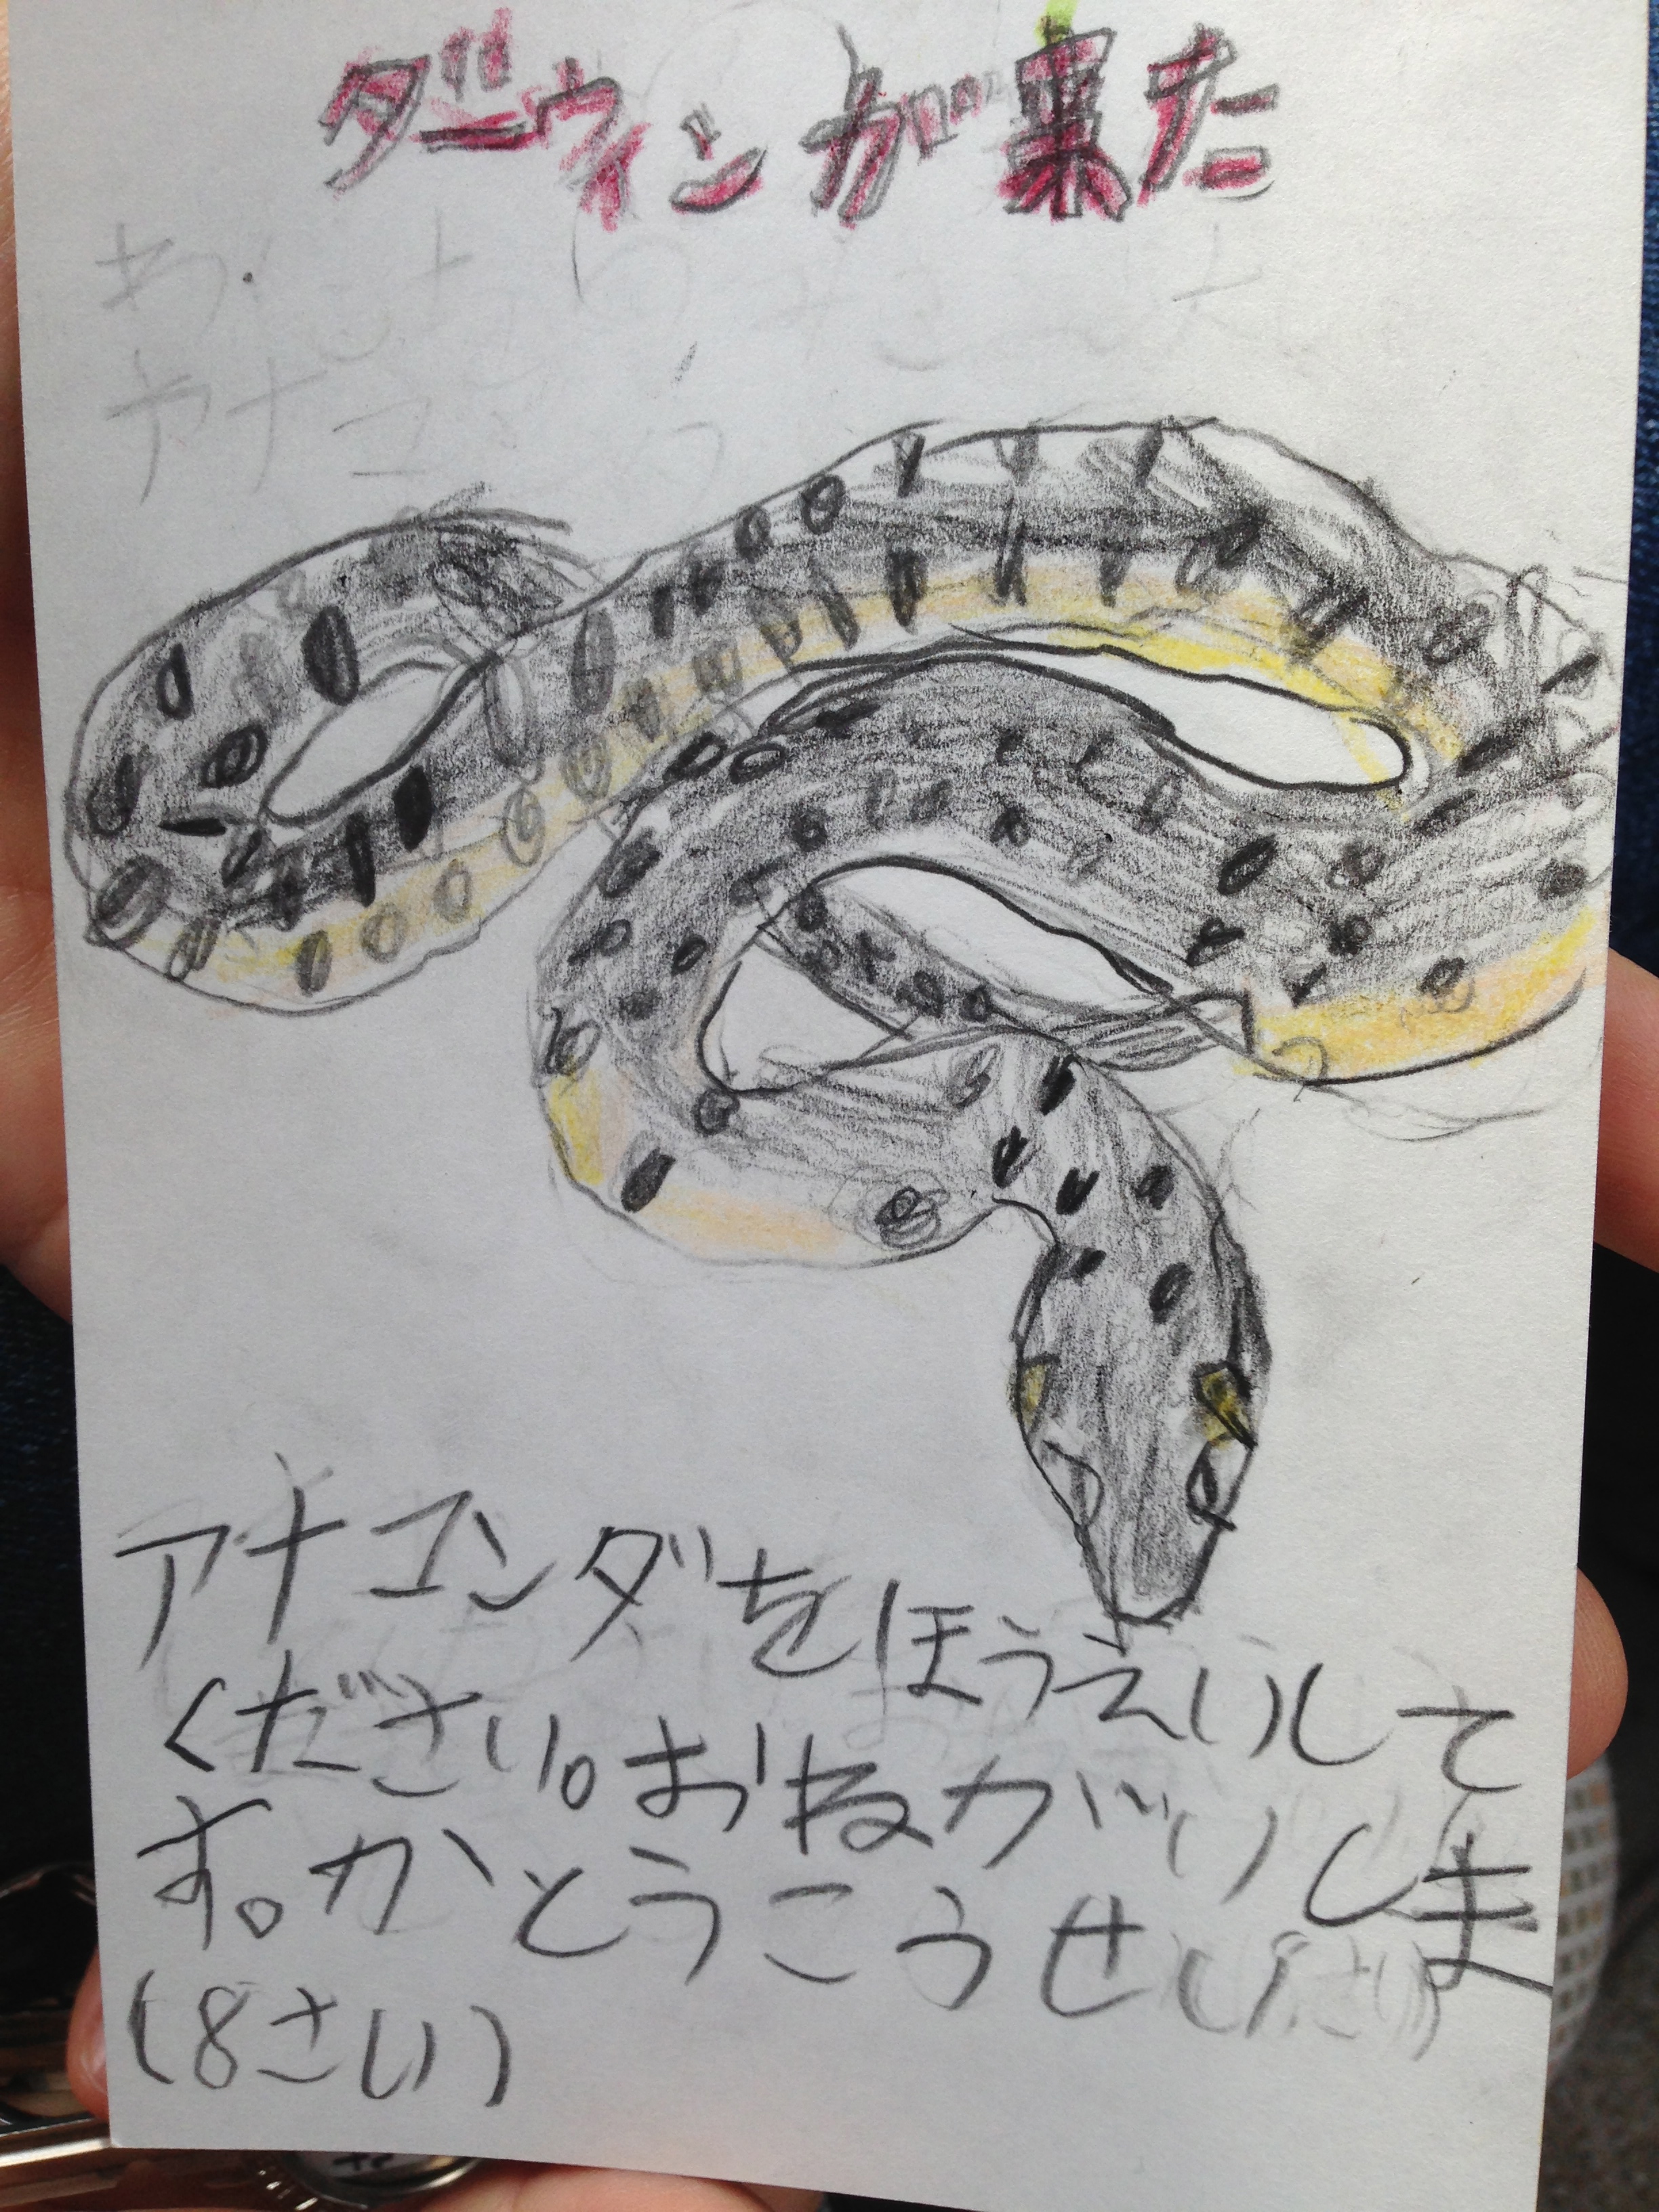 ダーウィンが来た
アナコンダをほうえいして
ください。おねがいしま
す。かとうこうせい
(8さい)